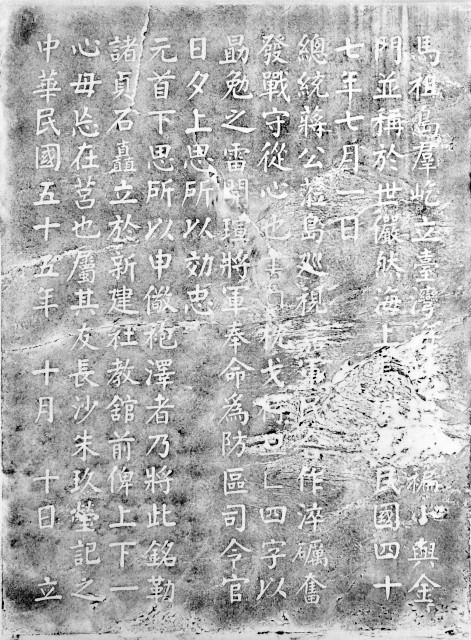 馬祖島羣屹立臺灣海 褊小與金
門並稱於世儼然海上 民國四十
七年七月一日
總統蔣公蒞島巡視嘉軍民 作淬礪奮
發戰守從心也書 枕戈 四字以
勗勉之雷開瑄將軍奉命為防區司令官
日夕上思所以効忠
元首下思所以申儆袍澤者乃將此銘勒
諸貞石矗立於新建社教舘前俾上下一
心毋忘在莒也屬其友長沙朱玖瑩記之
中華民國五十五年 十月 十日 立